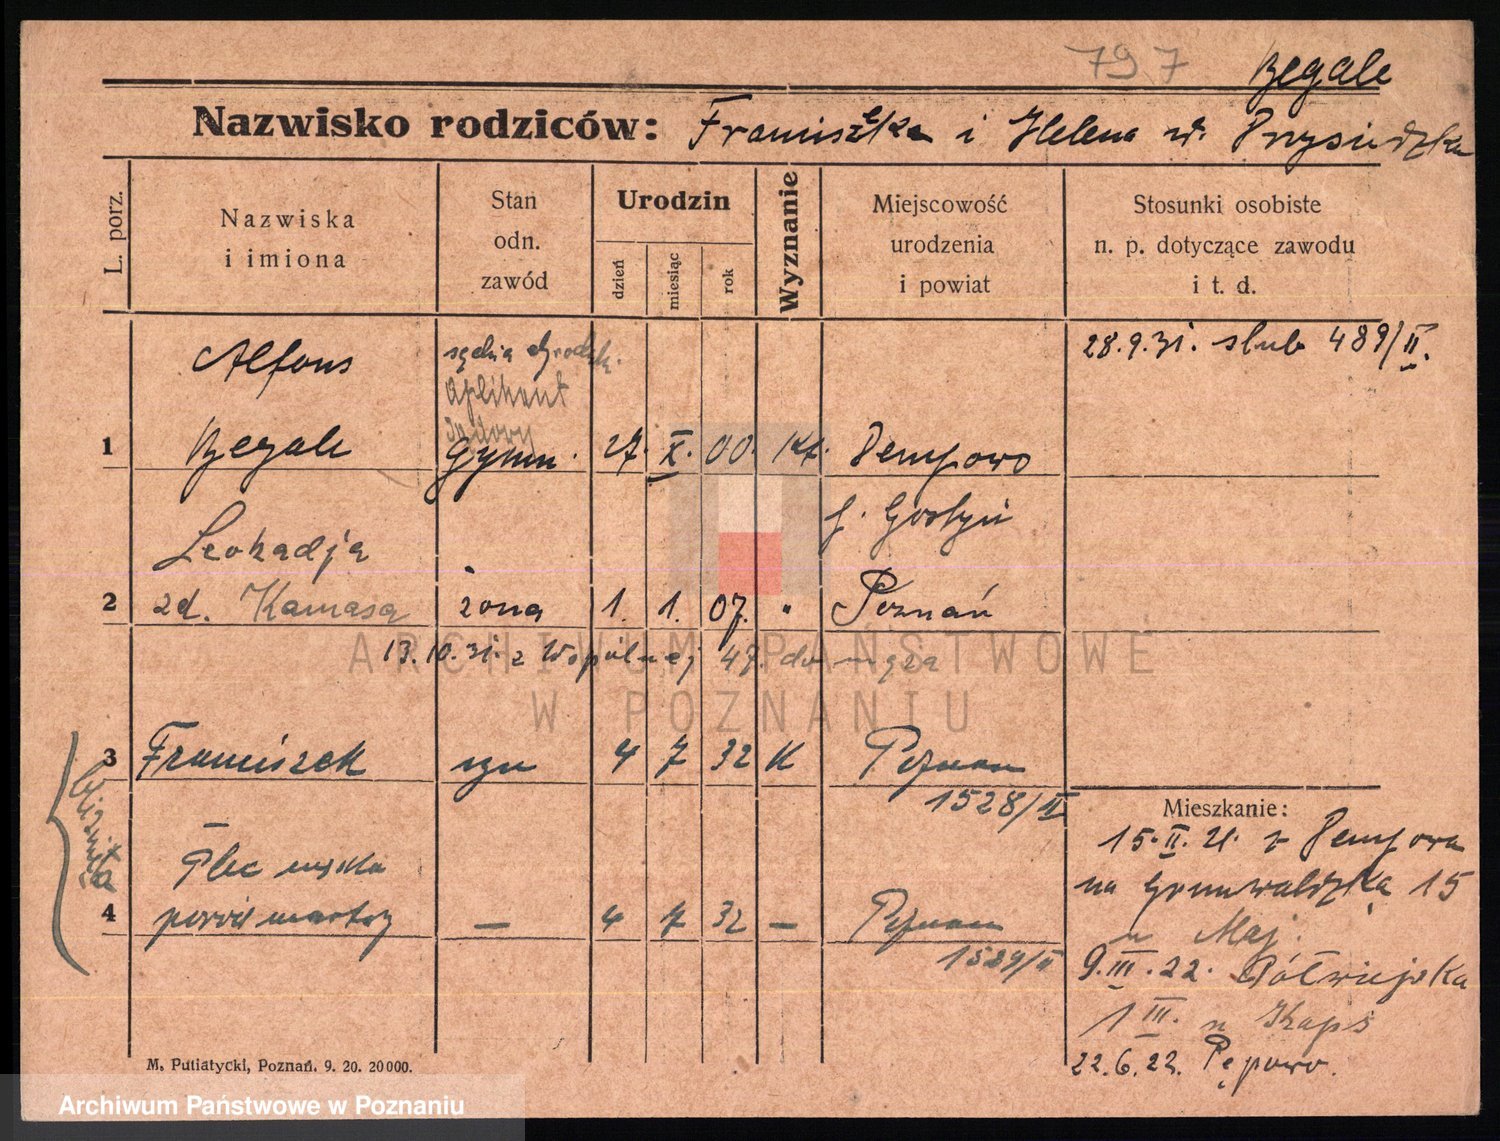 797 Begale
Nazwisko rodziców: Franciszka i Helena z d.
L. porz.
Nazwiska i imiona
Stan odn. zawód
Urodzin
dzień
miesiąc
rok
Wyznanie
Miejscowość urodzenia i powiat
Stosunki osobiste n. p. dotyczące zawodu i t. d.
28.9.31. slub 489/II.
Alfons
sędzia
aplikant
sądowy
1 Begale Gymn. 27. X. 00. Kt. Pempowo
Gostyń
Leokadja
2 zd. Kamasa żona 1. 1. 07. " Poznań
13.10.31. z Wspólnej 49. do męża
ARCHIWUM PAŃSTWOWE
W POZNANIU
3 Franciszek syn 4 7 32 K Poznan
1528/II
Bliźnięta
Mieszkanie:
15.II.21. z Pempowa
Płec męska
na Grunwaldzka 15
4 porod martwy — 4 7 32 — Poznan
u Maj.
1529/II
9.III.22. Półwiejska
1 III. u Kaps
22.6.22. Pępowo.
M. Putiatycki, Poznań. 9. 20. 20000.
Archiwum Państwowe w Poznaniu